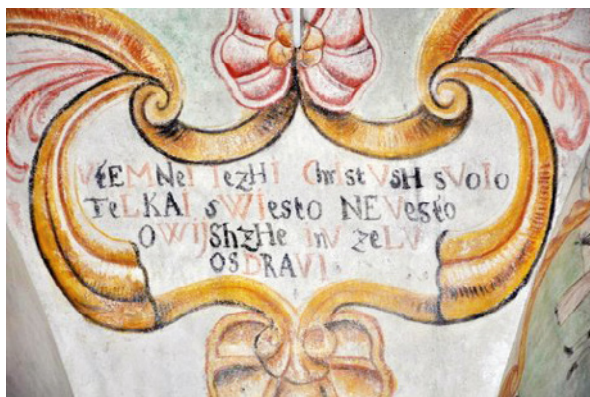 VtEMNeI IezHI ChrIstVsH sVoIo
TeLKAI sWIesto NEVesto
OWIJShzHe InV zeLV
OSDRAVI